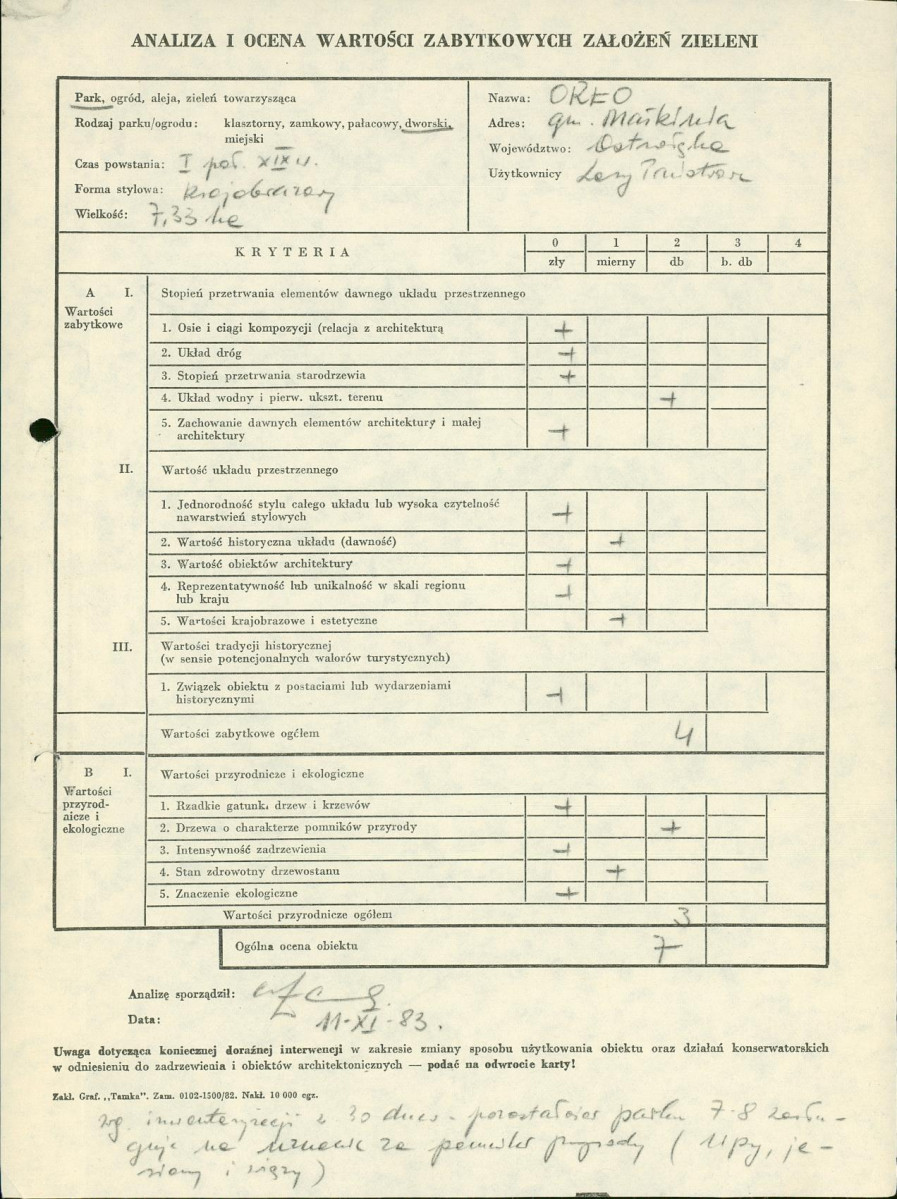 ANALIZA I OCENA WARTOŚCI ZABYTKOWYCH ZAŁOŻEŃ ZIELENI
Park, ogród, aleja, zieleń towarzysząca
Rodzaj parku/ogrodu: klasztorny, zamkowy, pałacowy, dworski,
miejski
Czas powstania: I poł. XIX w.
Forma stylowa: krajobrazowy
Wielkość: 7,33 ha
Nazwa: ORŁO
Adres: gm. Małkinia
Województwo: Ostrołęka
Użytkownicy Lasy Państwow
KRYTERIA
0 1 2 3 4
zły mierny db b. db
A I.
Wartości
zabytkowe
Stopień przetrwania elementów dawnego układu przestrzennego
1. Osie i ciągi kompozycji (relacja z architekturą +
2. Układ dróg +
3. Stopień przetrwania starodrzewia +
4. Układ wodny i pierw. ukszt. terenu +
5. Zachowanie dawnych elementów architektury i małej
architektury +
II. Wartość układu przestrzennego
1. Jednorodność stylu całego układu lub wysoka czytelność
nawarstwień stylowych +
2. Wartość historyczna układu (dawność) +
3. Wartość obiektów architektury +
4. Reprezentatywność lub unikalność w skali regionu
lub kraju +
5. Wartości krajobrazowe i estetyczne +
III. Wartości tradycji historycznej
(w sensie potencjonalnych walorów turystycznych)
1. Związek obiektu z postaciami lub wydarzeniami
historycznymi +
Wartości zabytkowe ogółem 4
B I.
Wartości
przyrod-
nicze i
ekologiczne
Wartości przyrodnicze i ekologiczne
1. Rzadkie gatunki drzew i krzewów +
2. Drzewa o charakterze pomników przyrody +
3. Intensywność zadrzewienia +
4. Stan zdrowotny drzewostanu +
5. Znaczenie ekologiczne +
Wartości przyrodnicze ogółem 3
Ogólna ocena obiektu 7
Analizę sporządził:
Data: 11-XI-83.
Uwaga dotycząca koniecznej doraźnej interwencji w zakresie zmiany sposobu użytkowania obiektu oraz działań konserwatorskich
w odniesieniu do zadrzewienia i obiektów architektonicznych — podać na odwrocie karty!
Zakł. Graf. „Tamka". Zam. 0102-1500/82. Nakł. 10 000 egz.
wg. inwentaryzacji z 30 drzew - pozostałość parku 7-8 zasłu-
guje na uznanie za pomniki przyrody (lipy, je-
siony i wiązy)